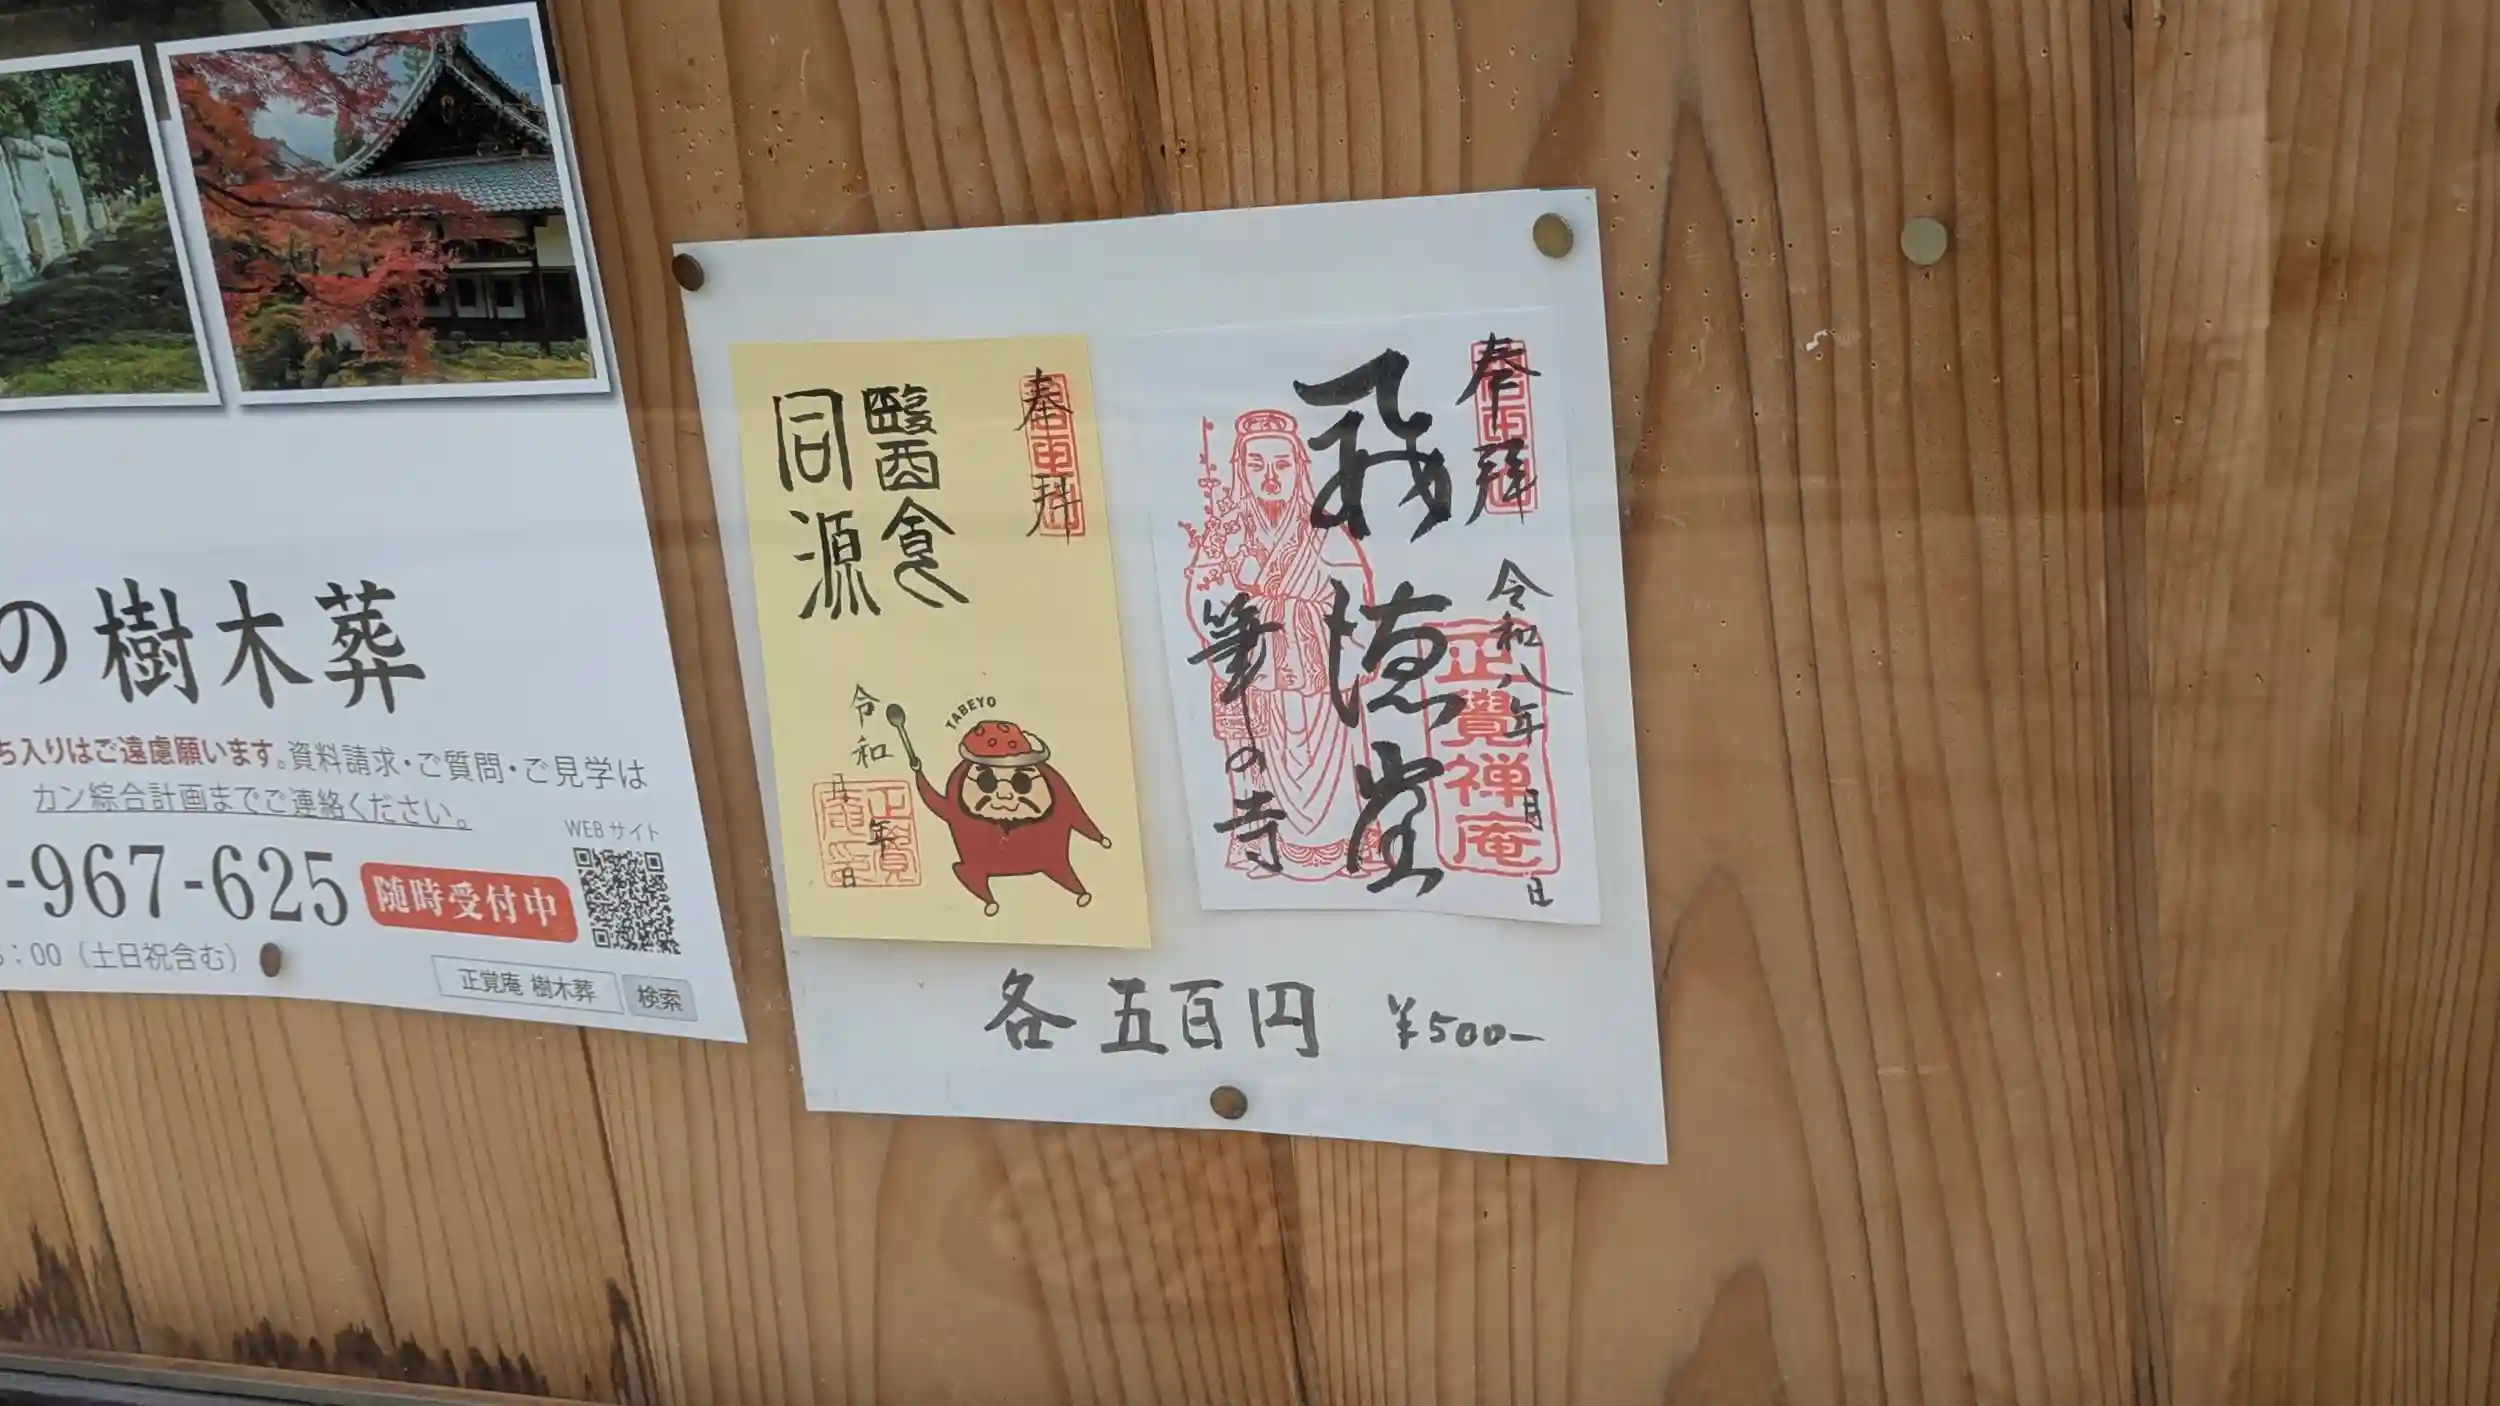 の樹木葬
ち入りはご遠慮願います。資料請求・ご質問・ご見学は
カン綜合計画までご連絡ください。
-967-625
随時受付中
WEBサイト
:00（土日祝含む）
正覚庵 樹木葬
検索
奉拝
醫食
同源
令和
年
月
日
TABEYO
正覺
奉拝
令和八年
月
日
飛
徳堂
筆の寺
正覺禅庵
各五百円 ¥500-